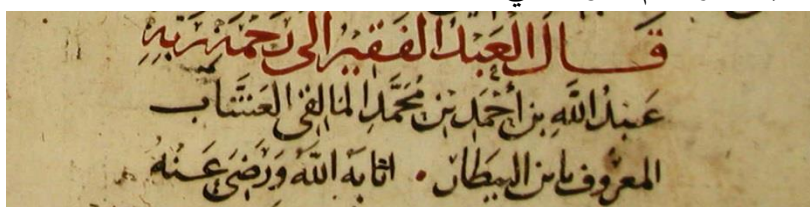 قَالَ العَبْدُ الفَقِيرُ الى رَحْمَةِ رَبِّهِ
عَبْدُ اللَّهِ بنُ أحْمَدَ بْنِ مُحَمَّدِ المَالِقى العَشَّابِ
المَعْرُوف بابن البيطار • اثابَهُ اللَّهُ وَرَضىَ عَنْهُ